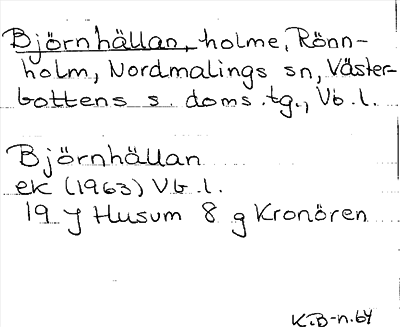 Björnhällan, holme, Rönn-
holm, Nordmalings sn, Väster-
bottens s. doms.tg., Vb.l.
Björnhällan
ek (1963) Vb.l.
19 J Husum 8 g Kronören
K.B-n.64